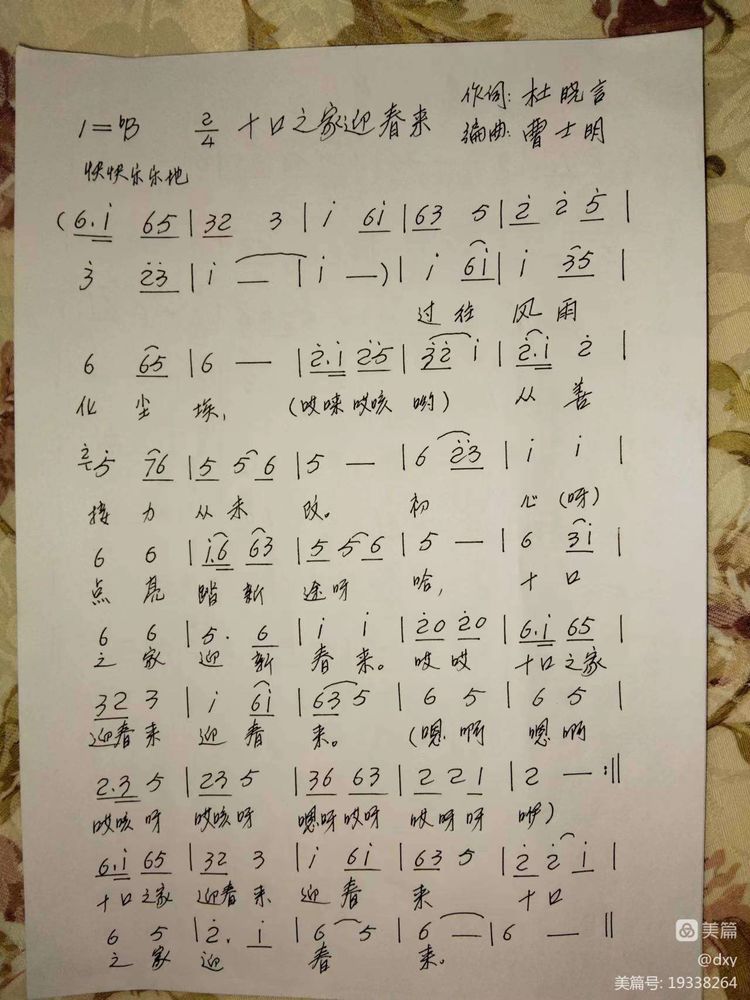 1=♭B 2/4 十口之家迎春来 作词:杜晓言
编曲:曹士明
快快乐乐地
(6.i 65|32 3|i 6i|63 5|2̇ 2̇ 5̇|
3̇ 2̇3̇|i —|i —)|i 6i|i 35|
过往 风雨
6 65|6 —|2̇.i 2̇5|3̇2̇ i|2̇.i 2̇|
化尘埃,(哎唻哎咳哟) 从善
5 76|5 5 6|5 —|6 2̇3̇|i i|
接力 从未 改。 初 心(呀)
6 6|i.6 63|5 5 6|5 —|6 3i|
点亮 踏新 途呀 哈, 十口
6 6|5. 6|i i|2̇0 2̇0|6.i 65|
之家 迎新 春来。哎哎 十口之家
32 3|i 6i|63 5|6 5|6 5|
迎春来 迎春 来。 (嗯啊 嗯啊
2.3 5|23 5|36 63|2 2 1|2 —:‖
哎咳呀 哎咳呀 嗯呀哎呀 哎呀呀 咿)
6.i 65|32 3|i 6i|63 5|2̇ 2̇ i|
十口之家 迎春来 迎春 来 十口
6 5|2̇. i|6 5|6 —|6 —‖
之家 迎 春 来。
美篇
@dxy
美篇号: 19338264